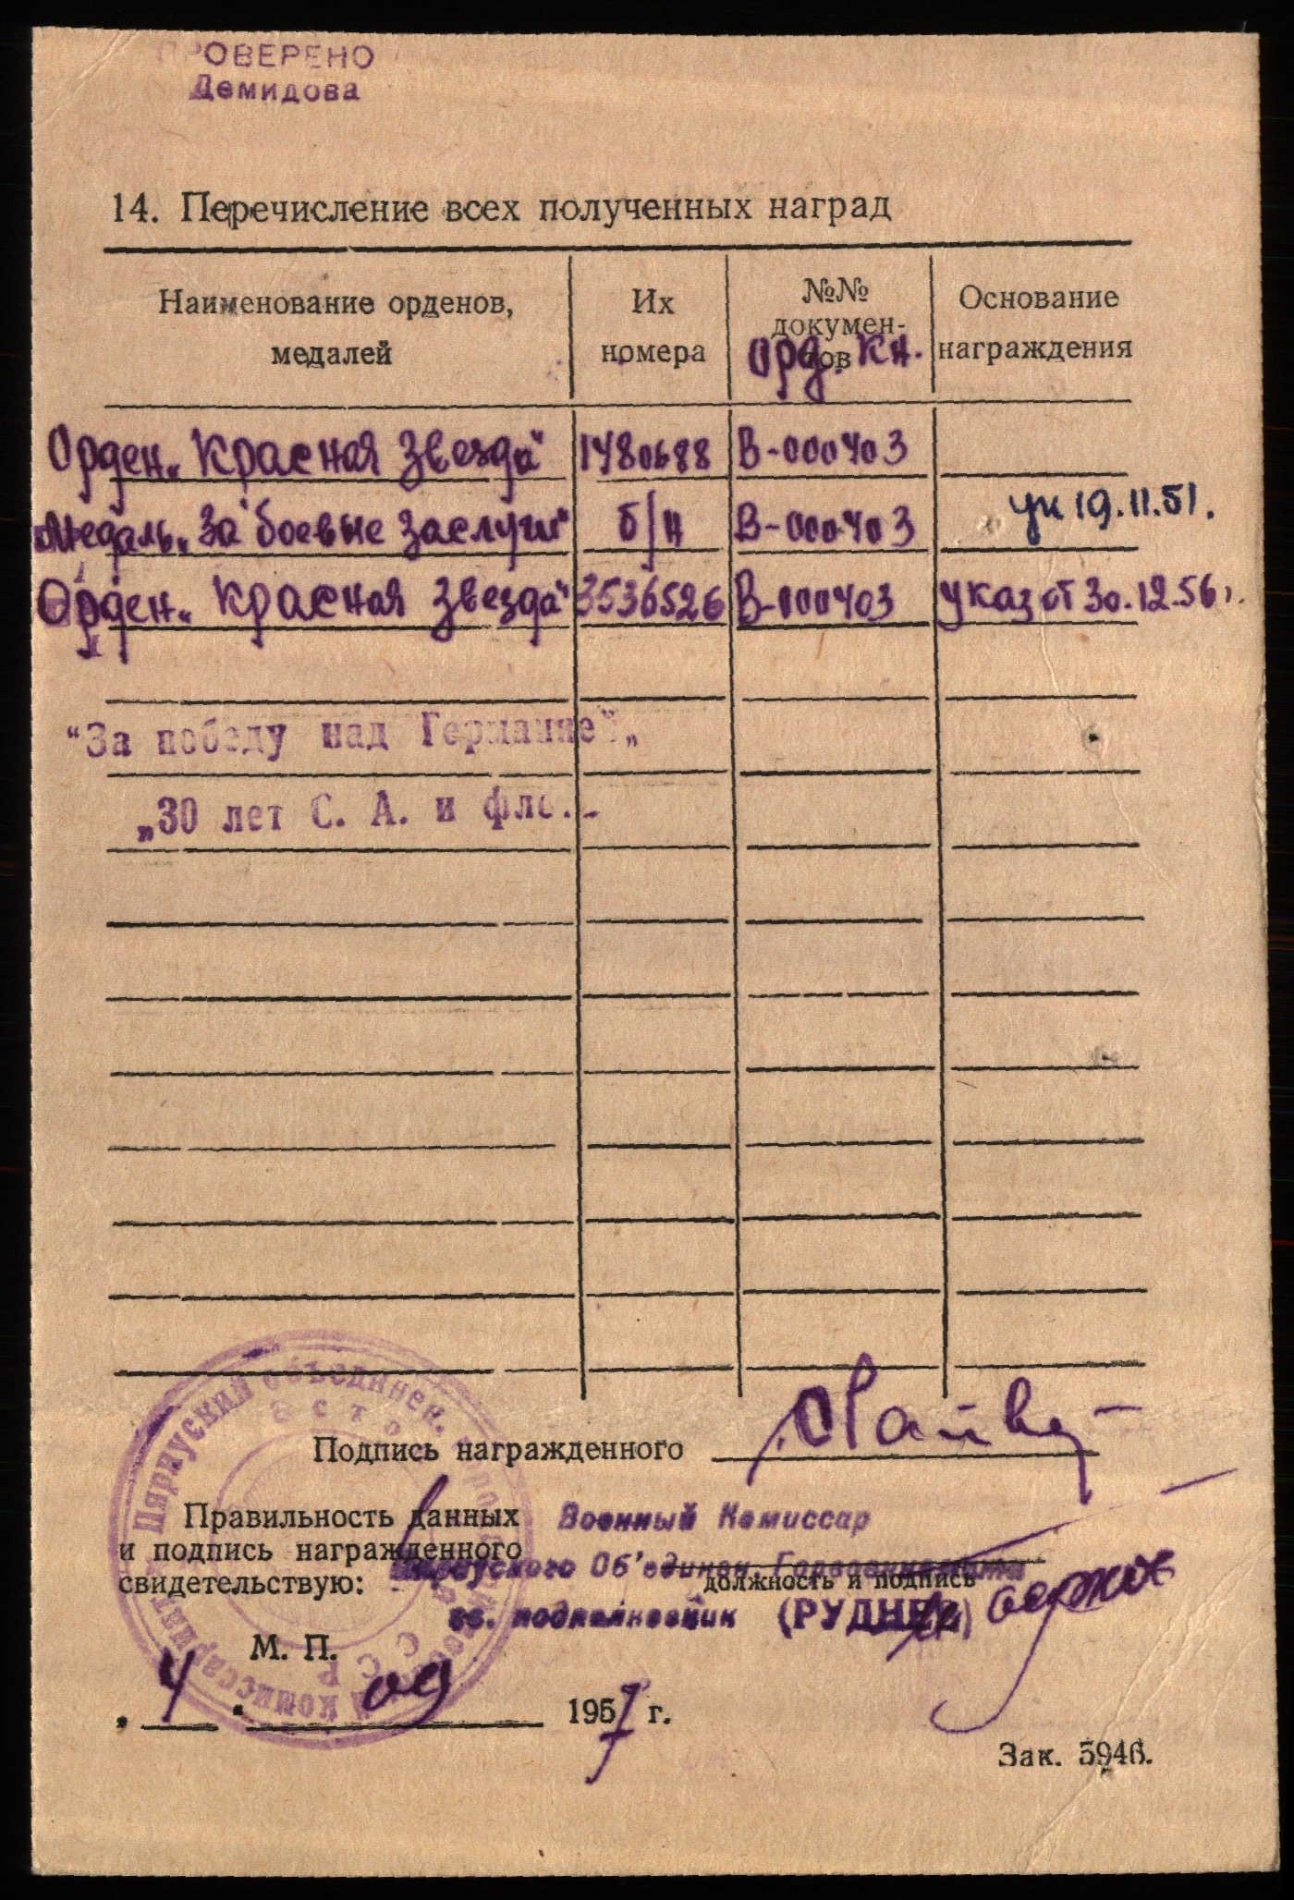 ПРОВЕРЕНО
Демидова
14. Перечисление всех полученных наград
Наименование орденов, медалей
Их номера
№№ докумен-тов
Орд. Кн.
Основание награждения
Орден „Красная Звезда" 1480688 В-000403
Медаль „За боевые заслуги" б/н В-000403 ук 19.11.51.
Орден „Красная Звезда" 3536526 В-000403 указ от 30.12.56г.
"За победу над Германией„
„30 лет С. А. и фло
Подпись награжденного
Правильность данных Военный Комиссар
и подпись награжденного Об'единен.
свидетельствую: должность и подпись
подполковник (РУДНЕВ)
М. П.
„4" 09 1957 г.
Зак. 5946.
Пярнуский объединен.